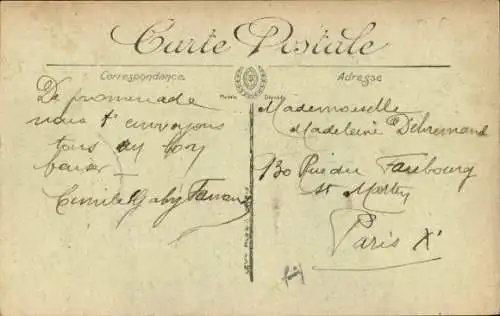 Carte Postale
Correspondance
Adresse
De promenade
nous t'envoyons
tous un bon
baiser
Gaby
Mademoiselle
Madeleine
130 Rue du Faubourg
St Martin
Paris Xᵉ